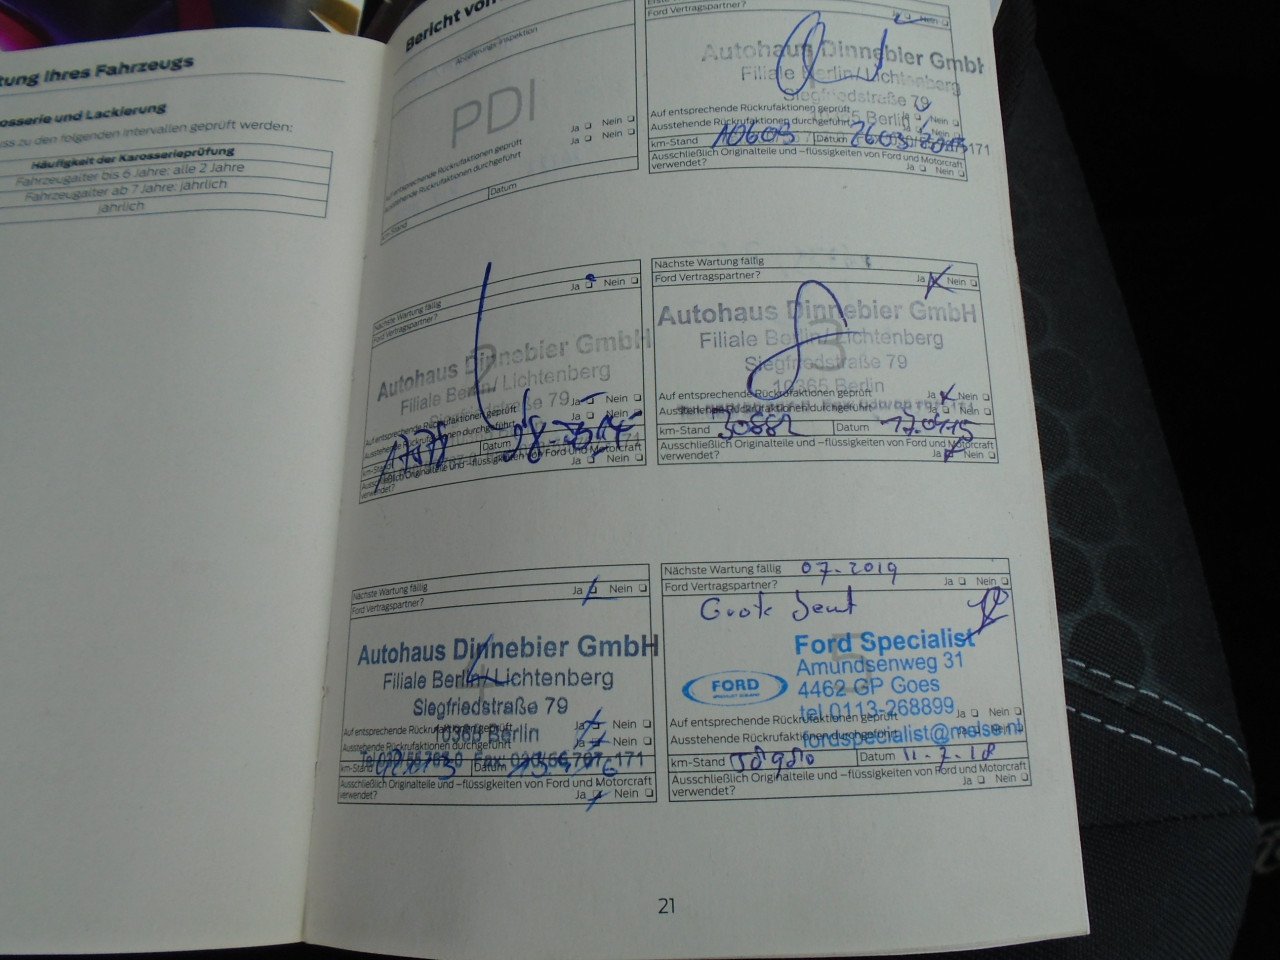 tung Ihres Fahrzeugs
osserie und Lackierung
ss zu den folgenden Intervallen geprüft werden:
Häufigkeit der Karosserieprüfung
Fahrzeugalter bis 6 Jahre: alle 2 Jahre
Fahrzeugalter ab 7 Jahre: jährlich
jährlich
Bericht von
Anlieferungs-Inspektion
PDI
Auf entsprechende Rückrufaktionen geprüft Ja Nein
Ausstehende Rückrufaktionen durchgeführt Ja Nein
km-Stand Datum
Ford Vertragspartner? Ja Nein
Autohaus Dinnebier GmbH
Filiale Berlin/Lichtenberg
Siegfriedstraße 79
Berlin
Auf entsprechende Rückrufaktionen geprüft
Ausstehende Rückrufaktionen durchgeführt Nein
km-Stand 10603 Datum 171
Ausschließlich Originalteile und –flüssigkeiten von Ford und Motorcraft
verwendet? Ja Nein
Nächste Wartung fällig
Ford Vertragspartner? Ja Nein
2
Autohaus Dinnebier GmbH
Filiale Berlin/Lichtenberg
Siegfriedstraße 79
Auf entsprechende Rückrufaktionen geprüft Ja Nein
Ausstehende Rückrufaktionen durchgeführt Ja Nein
km-Stand Datum
Ausschließlich Originalteile und –flüssigkeiten von Ford und Motorcraft
verwendet? Ja Nein
Nächste Wartung fällig
Ford Vertragspartner? Ja Nein
3
Autohaus Dinnebier GmbH
Filiale Berlin/Lichtenberg
Siegfriedstraße 79
10365 Berlin
Auf entsprechende Rückrufaktionen geprüft Ja Nein
Ausstehende Rückrufaktionen durchgeführt Ja Nein
km-Stand 30882 Datum 17.04.15
Ausschließlich Originalteile und –flüssigkeiten von Ford und Motorcraft
verwendet? Ja Nein
Nächste Wartung fällig
Ford Vertragspartner? Ja Nein
Autohaus Dinnebier GmbH
Filiale Berlin/Lichtenberg
Siegfriedstraße 79
10365 Berlin
Auf entsprechende Rückrufaktionen geprüft Ja Nein
Ausstehende Rückrufaktionen durchgeführt Ja Nein
km-Stand Datum 171
Ausschließlich Originalteile und –flüssigkeiten von Ford und Motorcraft
verwendet? Ja Nein
Nächste Wartung fällig 07-2019
Ford Vertragspartner? Ja Nein
Grote beurt
5
Ford Specialist
Amundsenweg 31
FORD
4462 GP Goes
tel.0113-268899
Auf entsprechende Rückrufaktionen geprüft Ja Nein
fordspecialist@melse.nl
Ausstehende Rückrufaktionen durchgeführt Ja Nein
km-Stand Datum 11-7-18
Ausschließlich Originalteile und –flüssigkeiten von Ford und Motorcraft
verwendet? Ja Nein
21